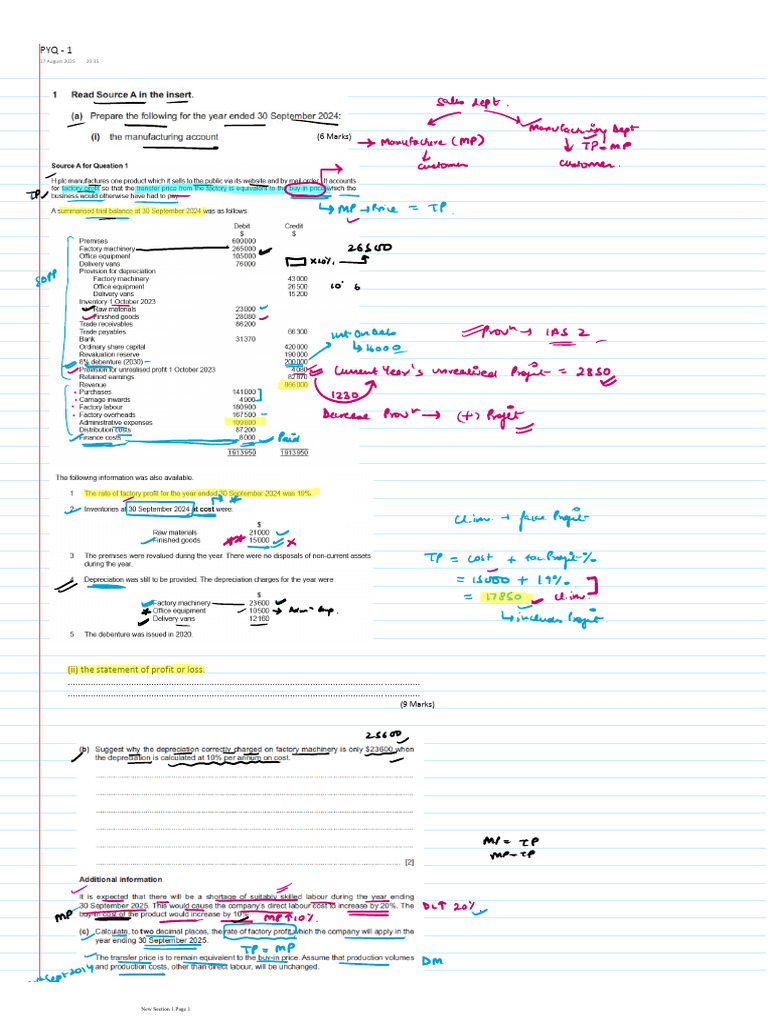 PYQ - 1
17 August 2025 20:35
1 Read Source A in the insert.
(a) Prepare the following for the year ended 30 September 2024:
(i) the manufacturing account (6 Marks)
Sales dept.
Manufacture (MP)
customer
Manufacturing Dept
TP = MP
customer
Source A for Question 1
H plc manufactures one product which it sells to the public via its website and by mail order. It accounts
for factory profit so that the transfer price from the factory is equivalent to the buy-in price which the
business would otherwise have had to pay.
TP
MP → Price = TP.
A summarised trial balance at 30 September 2024 was as follows:
Debit Credit
$ $
Premises 600000
Factory machinery 265000
Office equipment 105000
Delivery vans 76000
Provision for depreciation
Factory machinery 43000
Office equipment 26500
Delivery vans 15200
Inventory 1 October 2023
Raw materials 23000
Finished goods 28080
Trade receivables 86200
Trade payables 66300
Bank 31370
Ordinary share capital 420000
Revaluation reserve 190000
8% debenture (2030) 200000
Provision for unrealised profit 1 October 2023 4080
Retained earnings 82870
Revenue 866000
Purchases 141000
Carriage inwards 4000
Factory labour 180900
Factory overheads 167500
Administrative expenses 109800
Distribution costs 87200
Finance costs 8000
1913950 1913950
SOPP
26500
x10%
10% 6
Int on Deb
→ 16000
Provn → IAS 2
Current Year's unrealised Profit = 2850
1230
Decrease Provn → (+) Profit
Paid
The following information was also available.
1 The rate of factory profit for the year ended 30 September 2024 was 19%.
2 Inventories at 30 September 2024 at cost were:
$
Raw materials 21000
Finished goods 15000
3 The premises were revalued during the year. There were no disposals of non-current assets
during the year.
4 Depreciation was still to be provided. The depreciation charges for the year were:
$
Factory machinery 23600
Office equipment 10500
Delivery vans 12160
5 The debenture was issued in 2020.
Cl.inv + fac Profit
TP = cost + fac Profit%
= 15000 + 19%
= 17850 cl.inv
→ includes Profit
(ii) the statement of profit or loss.
(9 Marks)
(b) Suggest why the depreciation correctly charged on factory machinery is only $23600 when
the depreciation is calculated at 10% per annum on cost.
[2]
MP = TP
MP = TP
Additional information
It is expected that there will be a shortage of suitably skilled labour during the year ending
30 September 2025. This would cause the company's direct labour cost to increase by 20%. The
buy-in cost of the product would increase by 10%.
MP
MP ↑ 10%
DL ↑ 20%
(c) Calculate, to two decimal places, the rate of factory profit which the company will apply in the
year ending 30 September 2025.
TP = MP
The transfer price is to remain equivalent to the buy-in price. Assume that production volumes
and production costs, other than direct labour, will be unchanged.
DM
New Section 1 Page 1